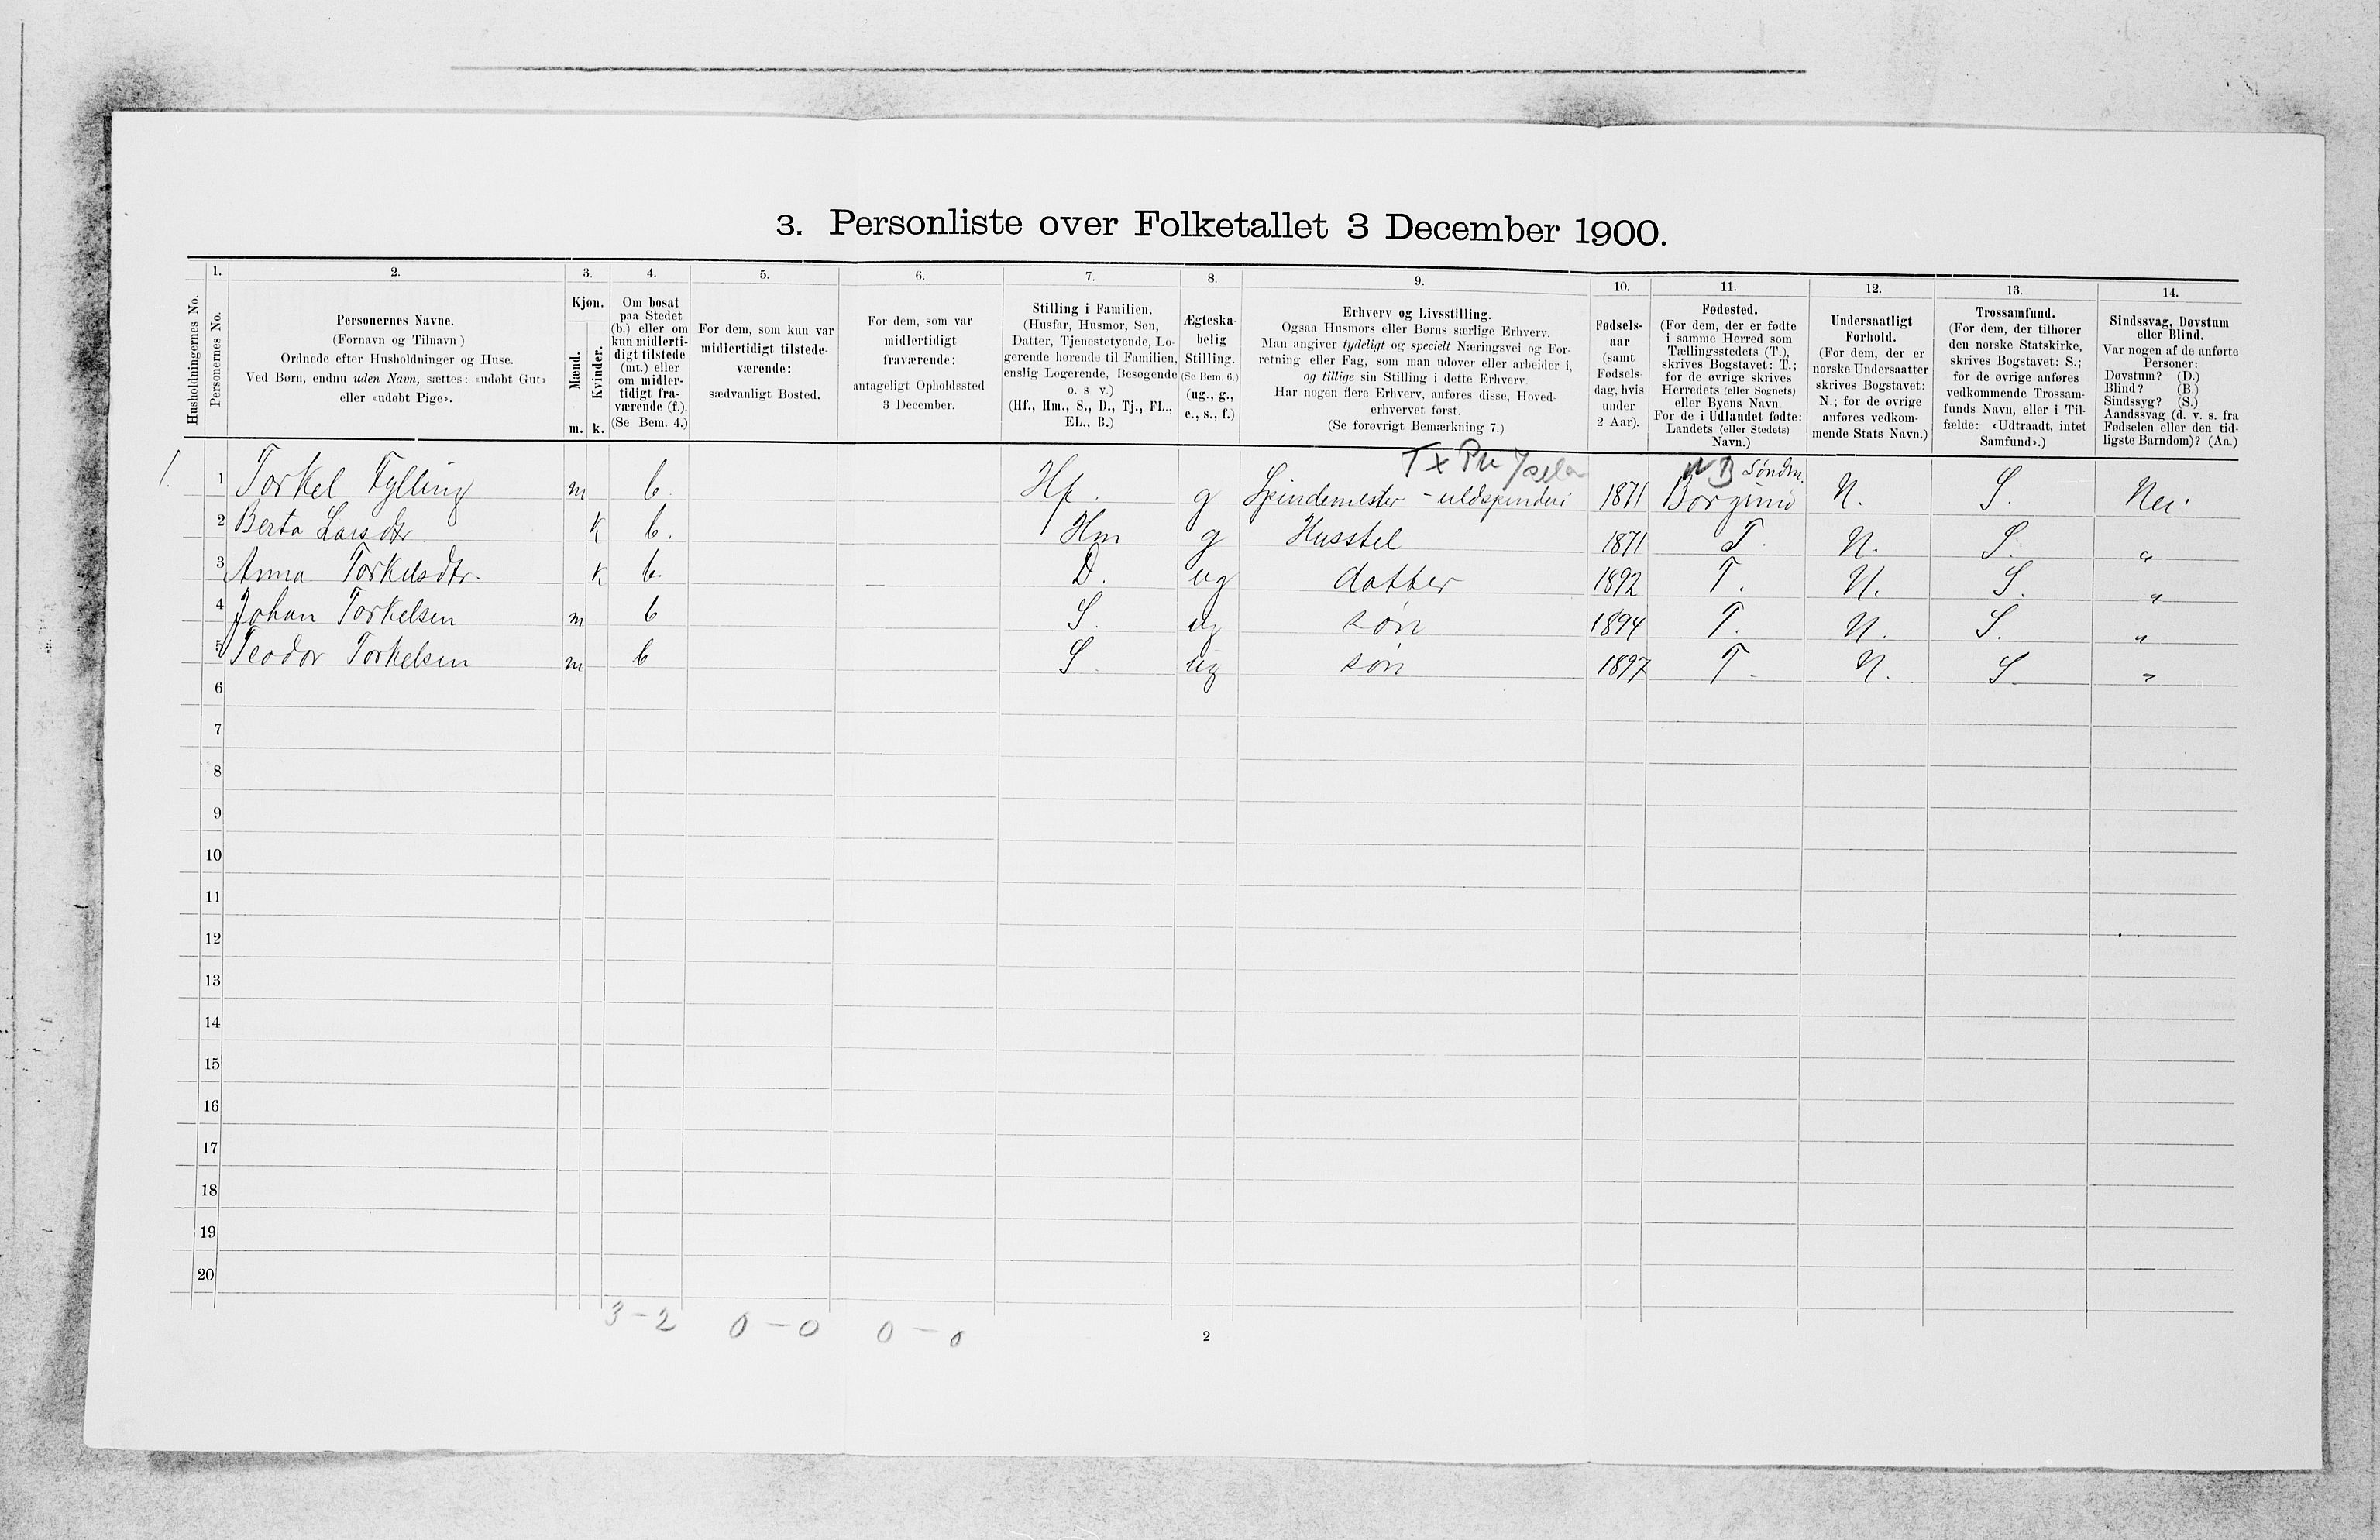 3. Personliste over Folketallet 3 December 1900.
1. 2. 3. 4. 5. 6. 7. 8. 9. 10. 11. 12. 13. 14.
Husholdningernes No.
Personernes No.
Personernes Navne.
(Fornavn og Tilnavn )
Ordnede efter Husholdninger og Huse.
Ved Børn, endnu uden Navn, sættes: «udøbt Gut»
eller «udøbt Pige».
Kjøn.
Mænd.
Kvinder.
m. k.
Om bosat
paa Stedet
(b.) eller om
kun midlerti-
digt tilstede
(mt.) eller
om midler-
tidigt fra-
værende (f.).
(Se Bem. 4.)
For dem, som kun var
midlertidigt tilstede-
værende:
sædvanligt Bosted.
For dem, som var
midlertidigt
fraværende:
antageligt Opholdssted
3 December.
Stilling i Familien.
(Husfar, Husmor, Søn,
Datter, Tjenestetyende, Lo-
gerende hørende til Familien,
enslig Logerende, Besøgende
o. s v.)
(Hf., Hm., S., D., Tj., FL.,
EL., B.)
Ægteska-
belig
Stilling.
(Se Bem. 6.)
(ug., g.,
e., s., f.)
Erhverv og Livsstilling.
Ogsaa Husmors eller Børns særlige Erhverv.
Man angiver tydeligt og specielt Næringsvei og For-
retning eller Fag, som man udøver eller arbeider i,
og tillige sin Stilling i dette Erhverv.
Har nogen flere Erhverv, anføres disse, Hoved-
erhvervet først.
(Se forøvrigt Bemærkning 7.)
Fødsels-
aar
(samt
Fødsels-
dag, hvis
under
2 Aar).
Fødested.
(For dem, der er fødte
i samme Herred som
Tællingsstedets (T.),
skrives Bogstavet: T.;
for de øvrige skrives
Herredets (eller Sognets)
eller Byens Navn.
For de i Udlandet fødte:
Landets (eller Stedets)
Navn.)
Undersaatligt
Forhold.
(For dem, der er
norske Undersaatter
skrives Bogstavet:
N.; for de øvrige
anføres vedkom-
mende Stats Navn.)
Trossamfund.
(For dem, der tilhører
den norske Statskirke,
skrives Bogstavet: S.;
for de øvrige anføres
vedkommende Trossam-
funds Navn, eller i Til-
fælde: «Udtraadt, intet
Samfund».)
Sindssvag, Døvstum
eller Blind.
Var nogen af de anførte
Personer:
Døvstum? (D.)
Blind? (B.)
Sindssyg? (S.)
Aandssvag (d. v. s. fra
Fødselen eller den tid-
ligste Barndom)? (Aa.)
Søndm.
1. 1 Torkel Fylling m b Hf. g Spindemester - uldspinderi 1871 Borgund N. S. Nei
2 Berta Larsdtr k b. Hm g Husstel 1871 T. N. S. "
3 Anna Torkelsdtr. k b. D. ug datter 1892 T. N. S. "
4 Johan Torkelsen m b S. ug søn 1894 T. N. S. "
5 Teodor Torkelsen m b S. ug søn 1897 T. N. S "
6
7
8
9
10
11
12
13
14
15
16
17
18
19
20
3 - 2 0 - 0 0 - 0
2